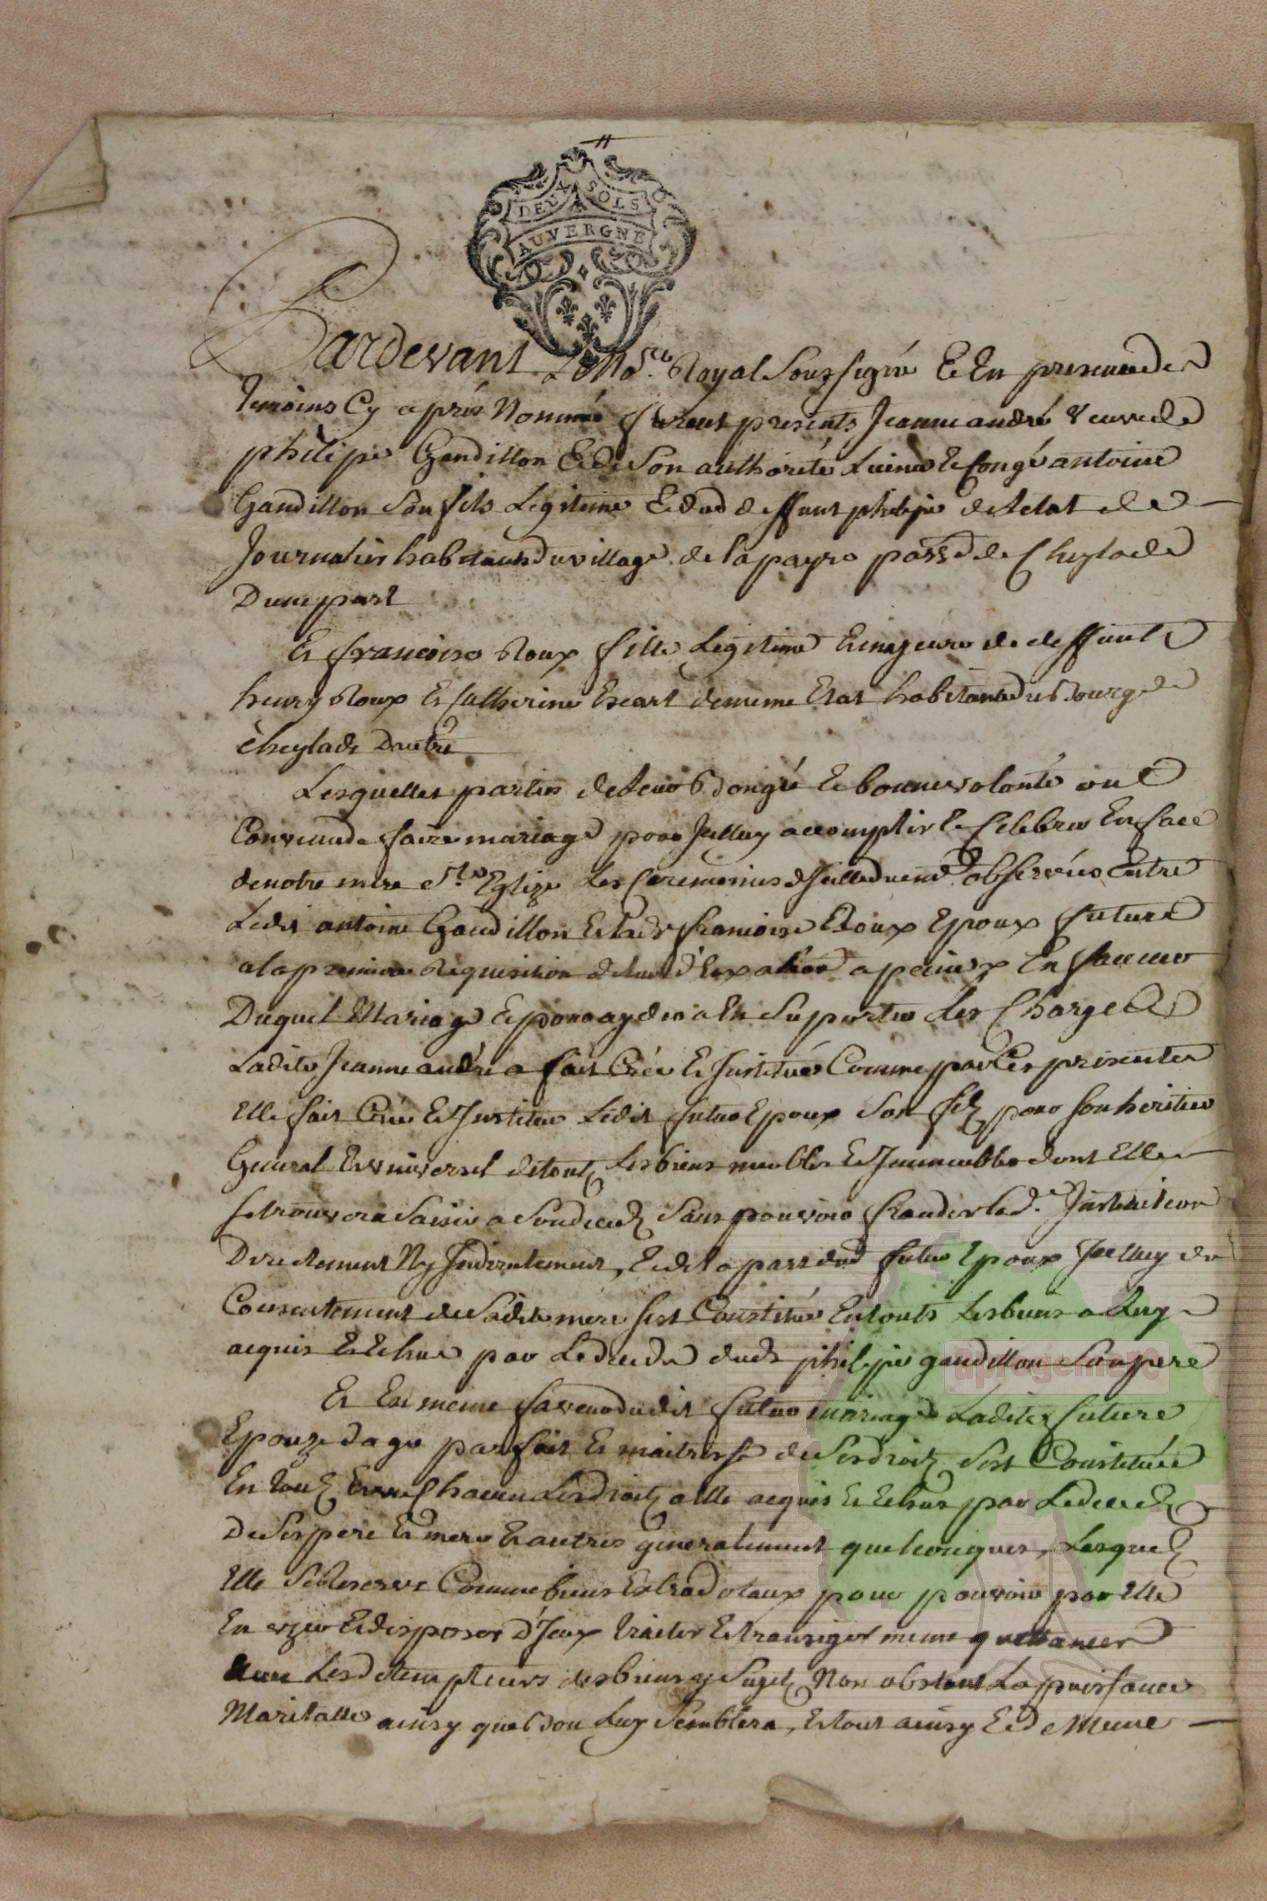 DEUX SOLS
AUVERGNE
Pardevant Le No.re Royal Soussigné Et En presence des
temoins Cy après Nommés furent presents Jeanne andré Veuve de
philipe Gandillon Et de Son authorité Licence Et Congé antoine
Gandillon Son fils Legitime Et dud deffunt philipe de letat de
Journalier habitants du village de la payre parsse de Cheylade
Dune part
Et francoise Roux fille Legitime Et majeure de deffunts
henry Roux Et Catherine de meme Etat habitante du Bourg de
Cheylade Dautre
Lesquelles parties de leur Bon gré Et bonne volonté ont
Convenu de faire mariage pour Jcelluy accomplir Et Celebrer En face
de notre mere Ste Eglize Les Ceremonies d'Jcelle duement observées Entre
Ledit antoine Gandillon Et lad francoise Roux Epoux futurs
a la premiere Requisition de lun d'Eux a lautre a peine En faveur
Duquel Mariage Et pour ayder a En Suporter Les Charges
Ladite Jeanne andré a fait Créé Et Jnstitué Comme par Ces presentes
Elle fait Crée Et Jnstitue Ledit futur Epoux Son fils pour Son heritier
General Et universel de touts Les biens meubles Et Jmmeubles dont Elle
Se trouvera Saisie a Son decedz Sans pouvoir frauder lad. Jnstitution
Directement Ny Jndirectement, Et de la part dud futur Epoux Jcelluy du
Consentement de Sadite mere Sest Constitué En touts Les biens a Luy
acquis Et Echus par Le deceds dudt philipe gandillon Son pere
Et En meme faveur dudit futur mariage Ladite future
Epouze dage parfait Et maitresse de Ses droits Sest Constituée
En touts Et un Chacun Les droits a Elle acquis Et Echus par Le decedz
De Ses pere Et mere Et autres generalement quelconques, Lesquels
Elle Se Reserve Comme biens Extradotaux pour pouvoir par Elle
En uzer Et disposer d'Jceux traiter Et transiger meme quittancer
Les detempteurs des biens y Sujets Non obstant La puissance
Maritalle ainsy que bon Luy Semblera, Et tout ainsy Et de Meme
upregement